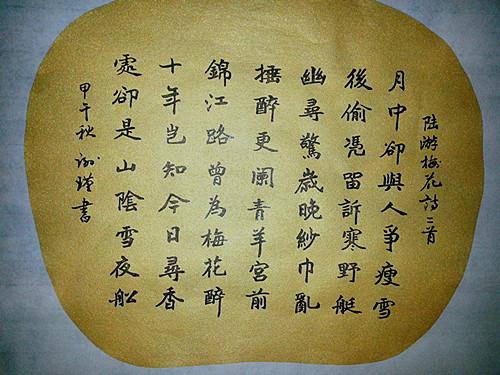 陸游梅花詩二首
月中卻與人爭瘦雪
後偷憑留訴寒野艇
幽尋驚歲晚紗巾亂
插醉更闌青羊宮前
錦江路曾為梅花醉
十年豈知今日尋香
處卻是山陰雪夜船
甲午秋 瑾書